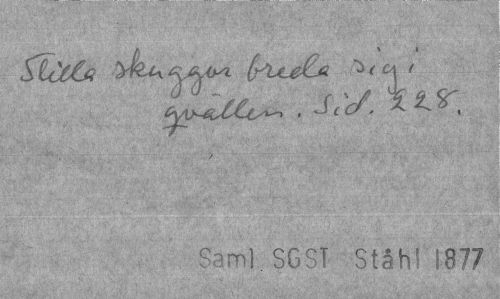 Stilla skuggor breda sig i
qvällen. Sid. 228.
Saml SGST Ståhl 1877